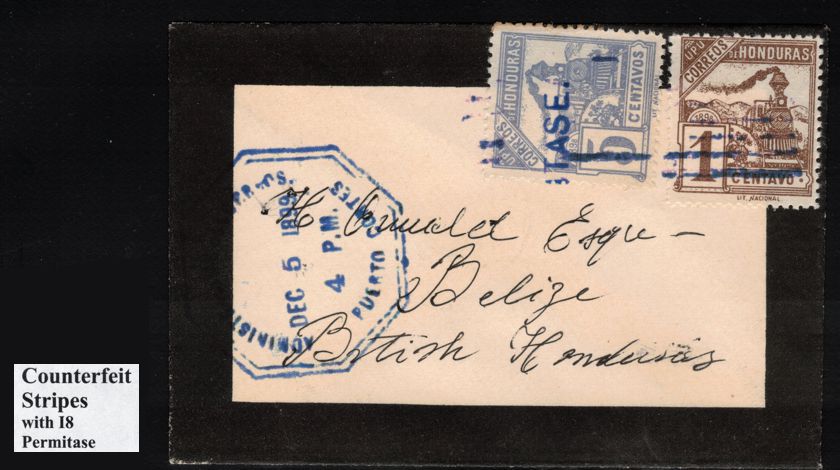 UPU
CORREOS
DE HONDURAS
1898
CENTAVOS
5
TASE.
UPU
CORREOS
DE HONDURAS
1898
1
CENTAVO
LIT. NACIONAL
DEC 5 1899
4 P.M.
PUERTO CORTES
Esqr
Belize
British Honduras
Counterfeit
Stripes
with I8
Permitase